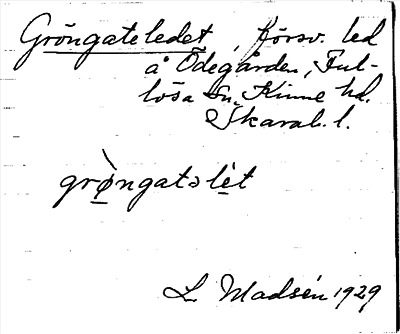 Gröngateledet, försv. led
å Ödegården, Ful-
lösa sn. Kinne hd.
Skarab. l.
grø̀ngatəlèt
L Madsén 1929